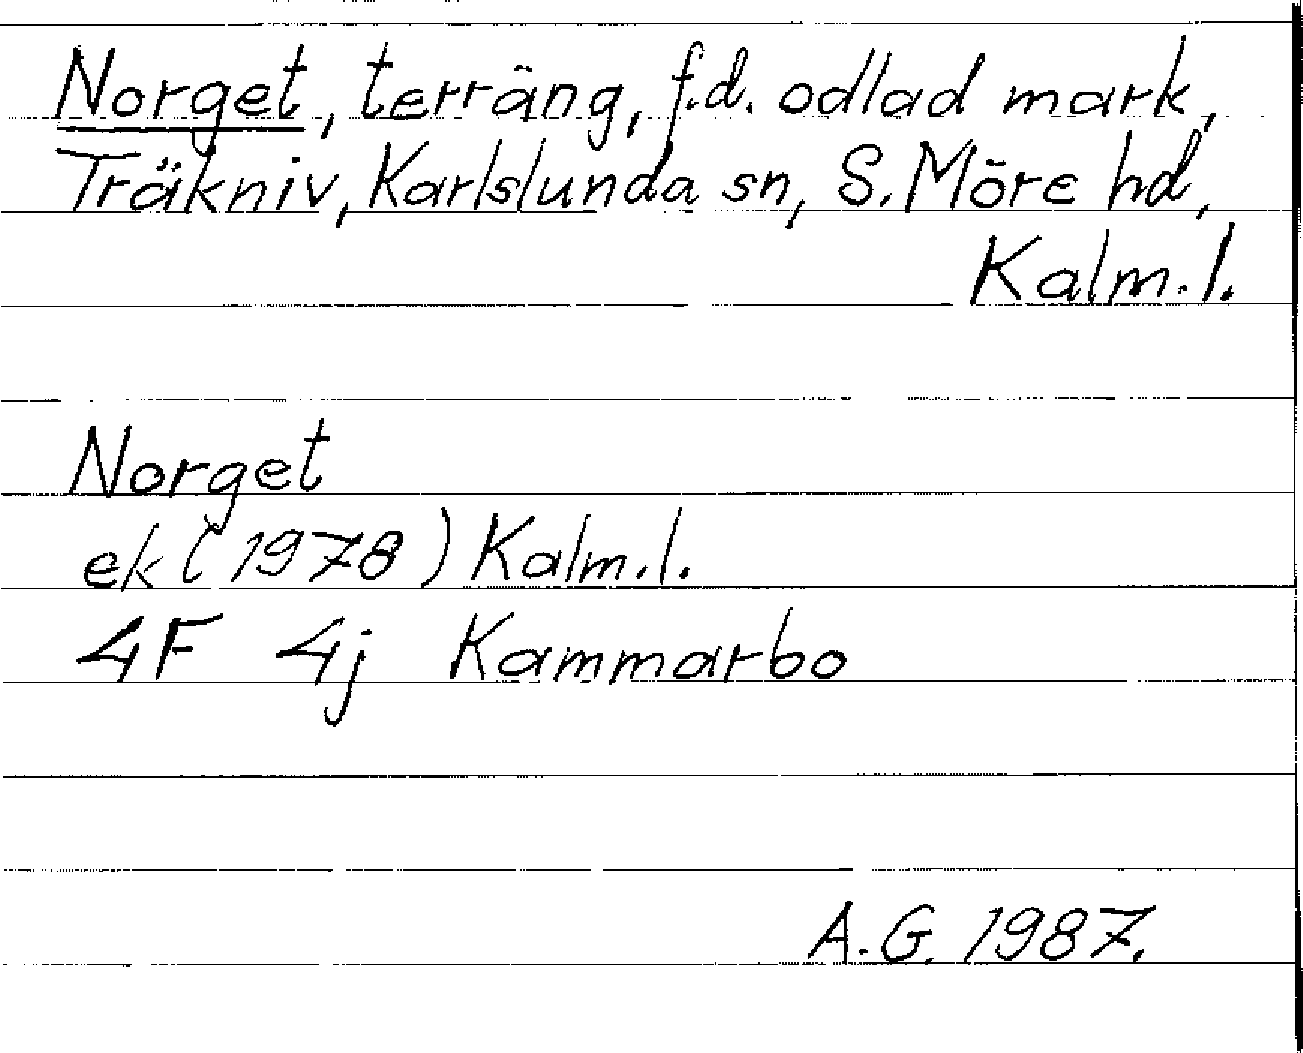 Norget, terräng, f.d. odlad mark,
Träkniv, Karlslunda sn, S. Möre hd,
Kalm. l.
Norget
ek (1978) Kalm. l.
4F 4j Kammarbo
A.G. 1987.